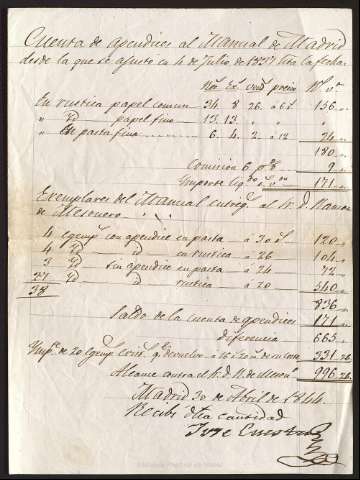 Cuenta de apendices al Manual de Madrid
desde la que se ajusto en 4 de Julio de 1837 hta la fecha.
En rustica papel comun 34. 8 26. á 6 rs 156
" Id papel fino 13. 13. " " "
" En pasta fina 6. 4. 2. á 12 24
180
Comision 9
Importe 171
Exemplares del Manual entreg. al Sr. D. Ramon
de Mesonero
4 egemp. con apendice en pasta á 30 120
4 Id id en rustica á 26 104
3 Id sin apendice en pasta á 24 72
27 Id id rustica á 20 540
38 836
Saldo de la cuenta de apendices 171
diferencia 665
de 20 egemp. 331.26
Alcance contra el Sr. D. R. de Meson. 996.26
Madrid 30 de Abril de 1844
Recibi dha cantidad
Jose Cuesta